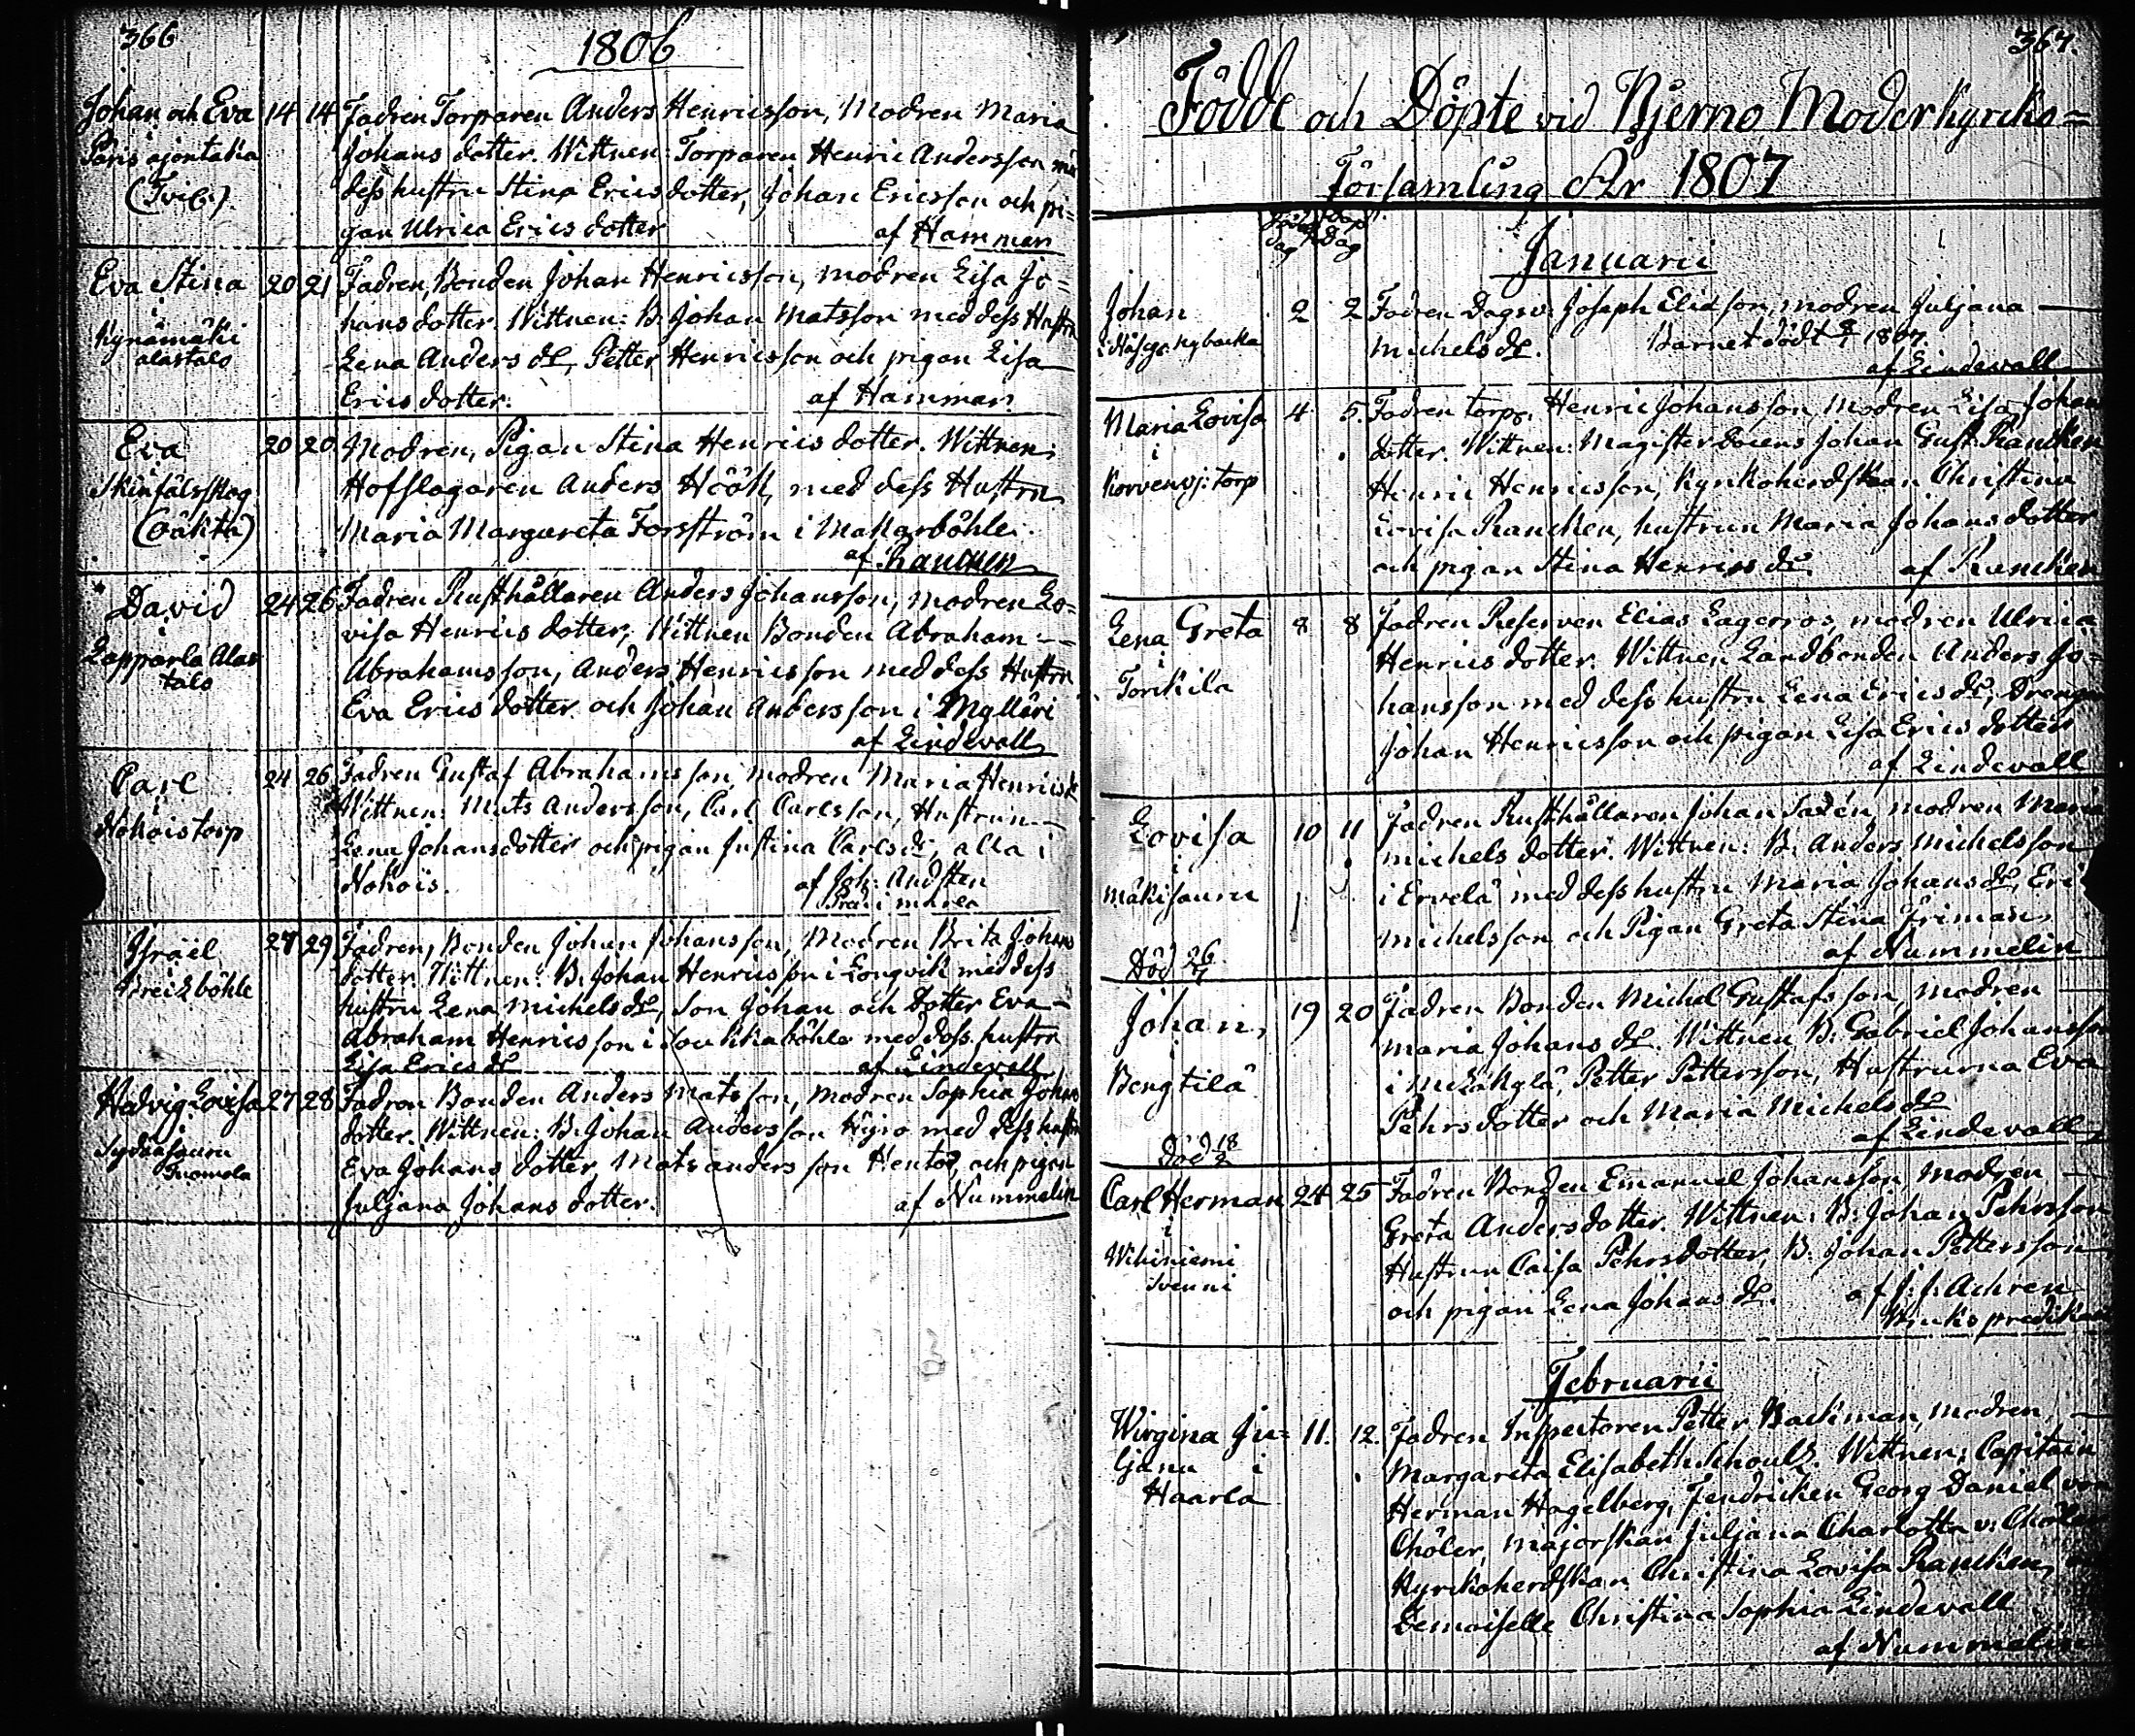 366
1806
Johan och Eva 14 14 Fadren Torparen Anders Henricsson, Modren Maria
i Johans dotter. Wittnen: Torparen Henric Andersson med
(Tvil:) dess hustru Stina Erics dotter, Johan Ericsson och pi=
gan Ulrica Erics dotter af Hammar
Eva Stina 20 21 Fadren, Bonden Johan Henricsson, modren Lisa Jo=
i hans dotter. Wittnen: B: Johan Matsson med dess Hustru
Kynämäki alastalo Lena Anders dr, Petter Henricsson och pigan Lisa
Erics dotter. af Hammar
Eva 20 20 Modren, Pigan Stina Henrics dotter. Wittnen:
i Hofslagaren Anders Höök, med dess Hustru
(oäkta) Maria Margareta Forsström i Makarböhle.
af Rancken
David 24 26 Fadren Rusthållaren Anders Johansson, modren Lo=
i visa Henrics dotter, Wittnen Bonden Abraham
Lapparla Alas Abrahamsson, Anders Henricsson med dess Hustru
talo Eva Erics dotter och Johan Andersson i Mylläri
af Lindevall
Carl 24 26 Fadren Gustaf Abrahamsson, modren Maria Henricsdr
i Wittnen: Mats Andersson, Carl Carlsson, Hustrun
Nokois torp Lena Johansdotter och pigan Justina Carlsdr, alla i
Nokois. af Joh: Andsten
Israël 27 29 Fadren, Bonden Johan Johansson, Modren Brita Johans
i dotter. Wittnen: B: Johan Henricsson i Longvik med dess
Preizböhle hustru Lena Michelsdr, Son Johan och Dotter Eva
Abraham Henricsson i med dess hustru
Lisa Erics dr af Lindevall
Hedvig Lovisa 27 28 Fadren Bonden Anders Matsson, modren Sophia Johans
i dotter. Wittnen: B: Johan Andersson Äijro med dess hustru
Tuomola Eva Johans dotter, Mats Andersson Hentor, och pigan
Juljana Johans dotter. af Nummelin
367.
Födde och Döpte vid Bjerno Moderkyrko=
Församling År 1807
Januarii
Johan 2 2 Fadren Dagsv: Joseph Eliasson, modren Juljana
Michels dr. Barnet dödt 1807.
af Lindevall
Maria Lovisa 4 5 Fadren torp. Henric Johansson, Modren Lisa Johans
i dotter. Wittnen: Magister Docens Johan Gust. Rancken
Korvensj: torp Henric Henricsson, Kyrkoherdskan Christina
Lovisa Rancken, hustrun Maria Johans dotter
och pigan Stina Henrics dr. af Rancken
Lena Greta 8 8 Fadren Reserven Elias Lagerros, modren Ulrica
i Henrics dotter. Wittnen Landbonden Anders Jo=
Torckila hansson med dess hustru Lena Erics dr, Drengen
Johan Henricsson och pigan Lisa Erics dotter
af Lindevall
Lovisa 10 11 Fadren Rusthållaren Johan Saxén, modren Maria
i Michels dotter. Wittnen: B: Anders Michelsson
Mäkisauru i Ervelä med dess hustru Maria Johans dr, Eric
Michelsson och Pigan Greta Stina Friman
Död 26/ af Nummelin
Johan, 19 20 Fadren Bonden Michel Gustafsson, modren
i Maria Johans dr. Wittnen B: Gabriel Johansson
Bengtilä i Metzäkylä, Petter Pettersson, Hustrurna Eva
Pehrs dotter och Maria Michels dr
Död 18/2 af Lindevall
Carl Herman 24 25 Fadren Bonden Emanuel Johansson, Modren
i Greta Anders dotter. Wittnen: B: Johan Pehrsson
Wihiniemi Hustrun Caisa Pehrsdotter, B: Johan Pettersson
Svenni och pigan Lena Johans dr. af J: J: Achren
Bruks predikant
Februarii
Wirgina Ju= 11. 12. Fadren Inspectoren Petter Backman, modren
ljana i Margareta Elisabeth Schoultz. Wittnen: Capitain
Haarla Herman Hagelberg, Fendricken Georg Daniel von
Chöler, Majorskan Juljana Charlotta v: Chöler
Kyrkoherdskan Christina Lovisa Rancken,
Demoiselle Christina Sophia Lindevall
af Nummelin